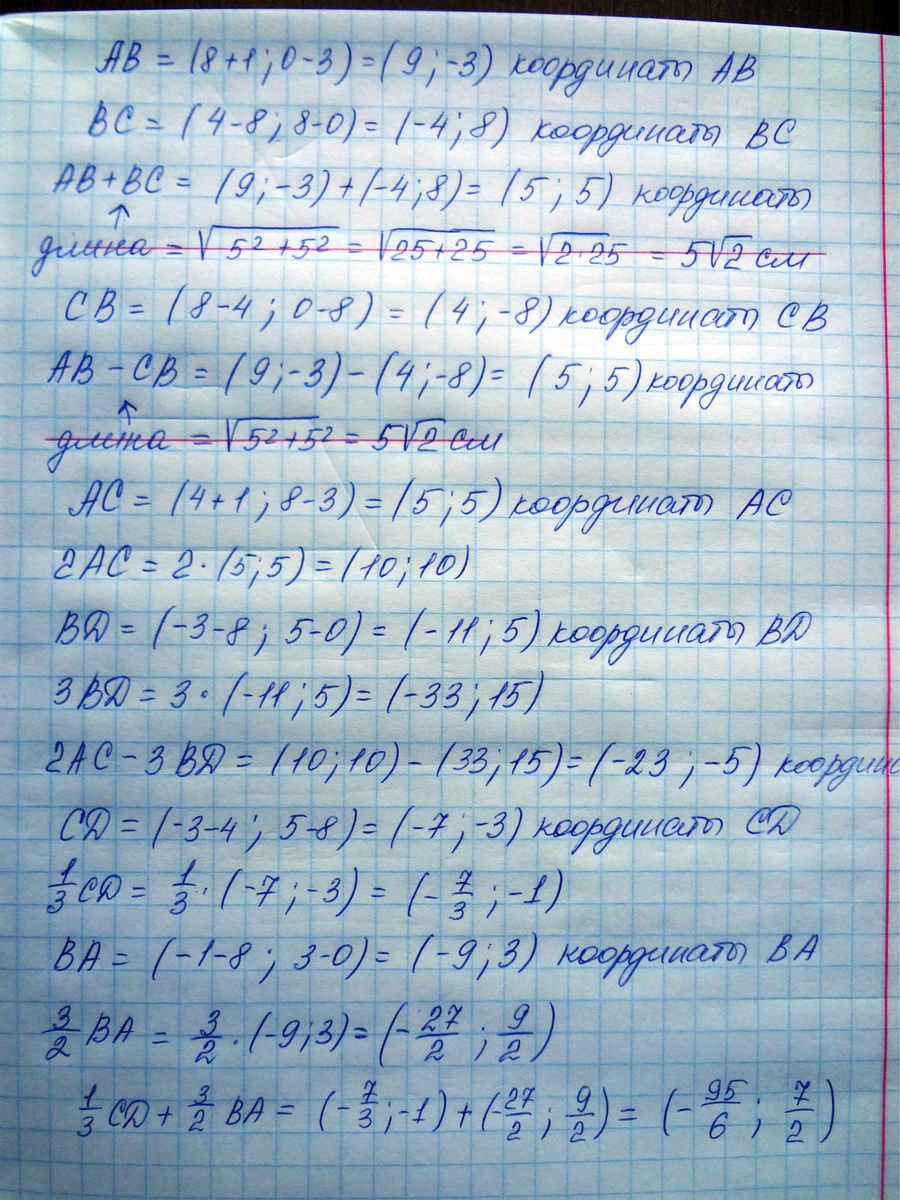 AB = (8+1; 0-3) = (9; -3) координаты AB
BC = (4-8; 8-0) = (-4; 8) координаты BC
AB+BC = (9; -3) + (-4; 8) = (5; 5) координаты
↑
длина = √5²+5² = √25+25 = √2·25 = 5√2 см
CB = (8-4; 0-8) = (4; -8) координаты CB
AB - CB = (9; -3) - (4; -8) = (5; 5) координаты
↑
длина = √5²+5² = 5√2 см
AC = (4+1; 8-3) = (5; 5) координаты AC
2AC = 2·(5; 5) = (10; 10)
BD = (-3-8; 5-0) = (-11; 5) координаты BD
3BD = 3·(-11; 5) = (-33; 15)
2AC - 3BD = (10; 10) - (33; 15) = (-23; -5)
CD = (-3-4; 5-8) = (-7; -3) координаты CD
1/3 CD = 1/3·(-7; -3) = (-7/3; -1)
BA = (-1-8; 3-0) = (-9; 3) координаты BA
3/2 BA = 3/2·(-9; 3) = (-27/2; 9/2)
1/3 CD + 3/2 BA = (-7/3; -1) + (-27/2; 9/2) = (-95/6; 7/2)